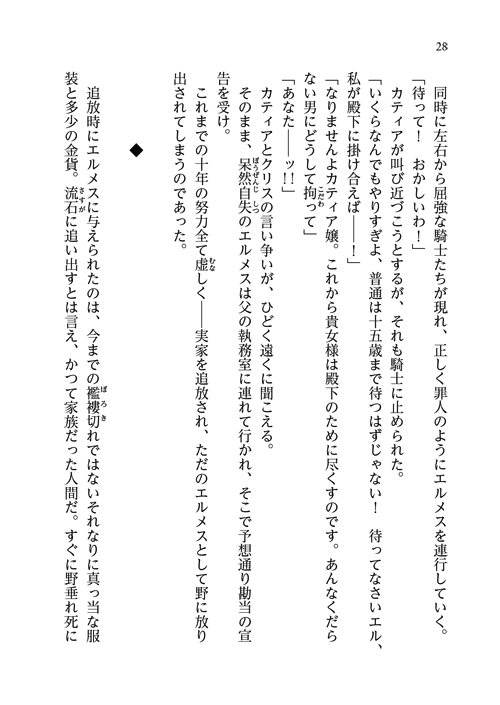 28
同時に左右から屈強な騎士たちが現れ、正しく罪人のようにエルメスを連行していく。
「待って！　おかしいわ！」
カティアが叫び近づこうとするが、それも騎士に止められた。
「いくらなんでもやりすぎよ、普通は十五歳まで待つはずじゃない！　待ってなさいエル、
私が殿下に掛け合えば――！」
「なりませんよカティア嬢。これから貴女様は殿下のために尽くすのです。あんなくだら
ない男にどうして拘って」
「あなた――ッ!!」
カティアとクリスの言い争いが、ひどく遠くに聞こえる。
そのまま、呆然自失のエルメスは父の執務室に連れて行かれ、そこで予想通り勘当の宣
告を受け。
これまでの十年の努力全て虚しく――実家を追放され、ただのエルメスとして野に放り
出されてしまうのであった。
◆
追放時にエルメスに与えられたのは、今までの襤褸切れではないそれなりに真っ当な服
装と多少の金貨。流石に追い出すとは言え、かつて家族だった人間だ。すぐに野垂れ死に